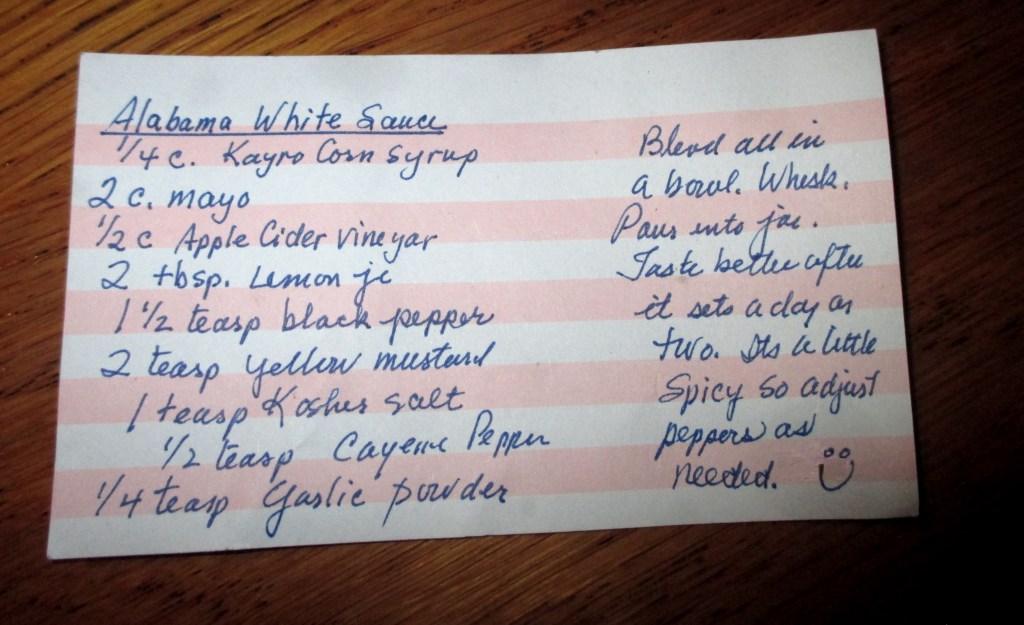 Alabama White Sauce
1/4 c. Kayro Corn Syrup
2 c. mayo
1/2 c Apple Cider vinegar
2 tbsp. Lemon jc
1 1/2 teasp black pepper
2 teasp yellow mustard
1 teasp Kosher salt
1/2 teasp Cayenne Pepper
1/4 teasp Garlic powder
Blend all in
a bowl. Whisk.
Pour into jar.
Taste better after
it sets a day or
two. Its a little
Spicy so adjust
peppers as
needed.